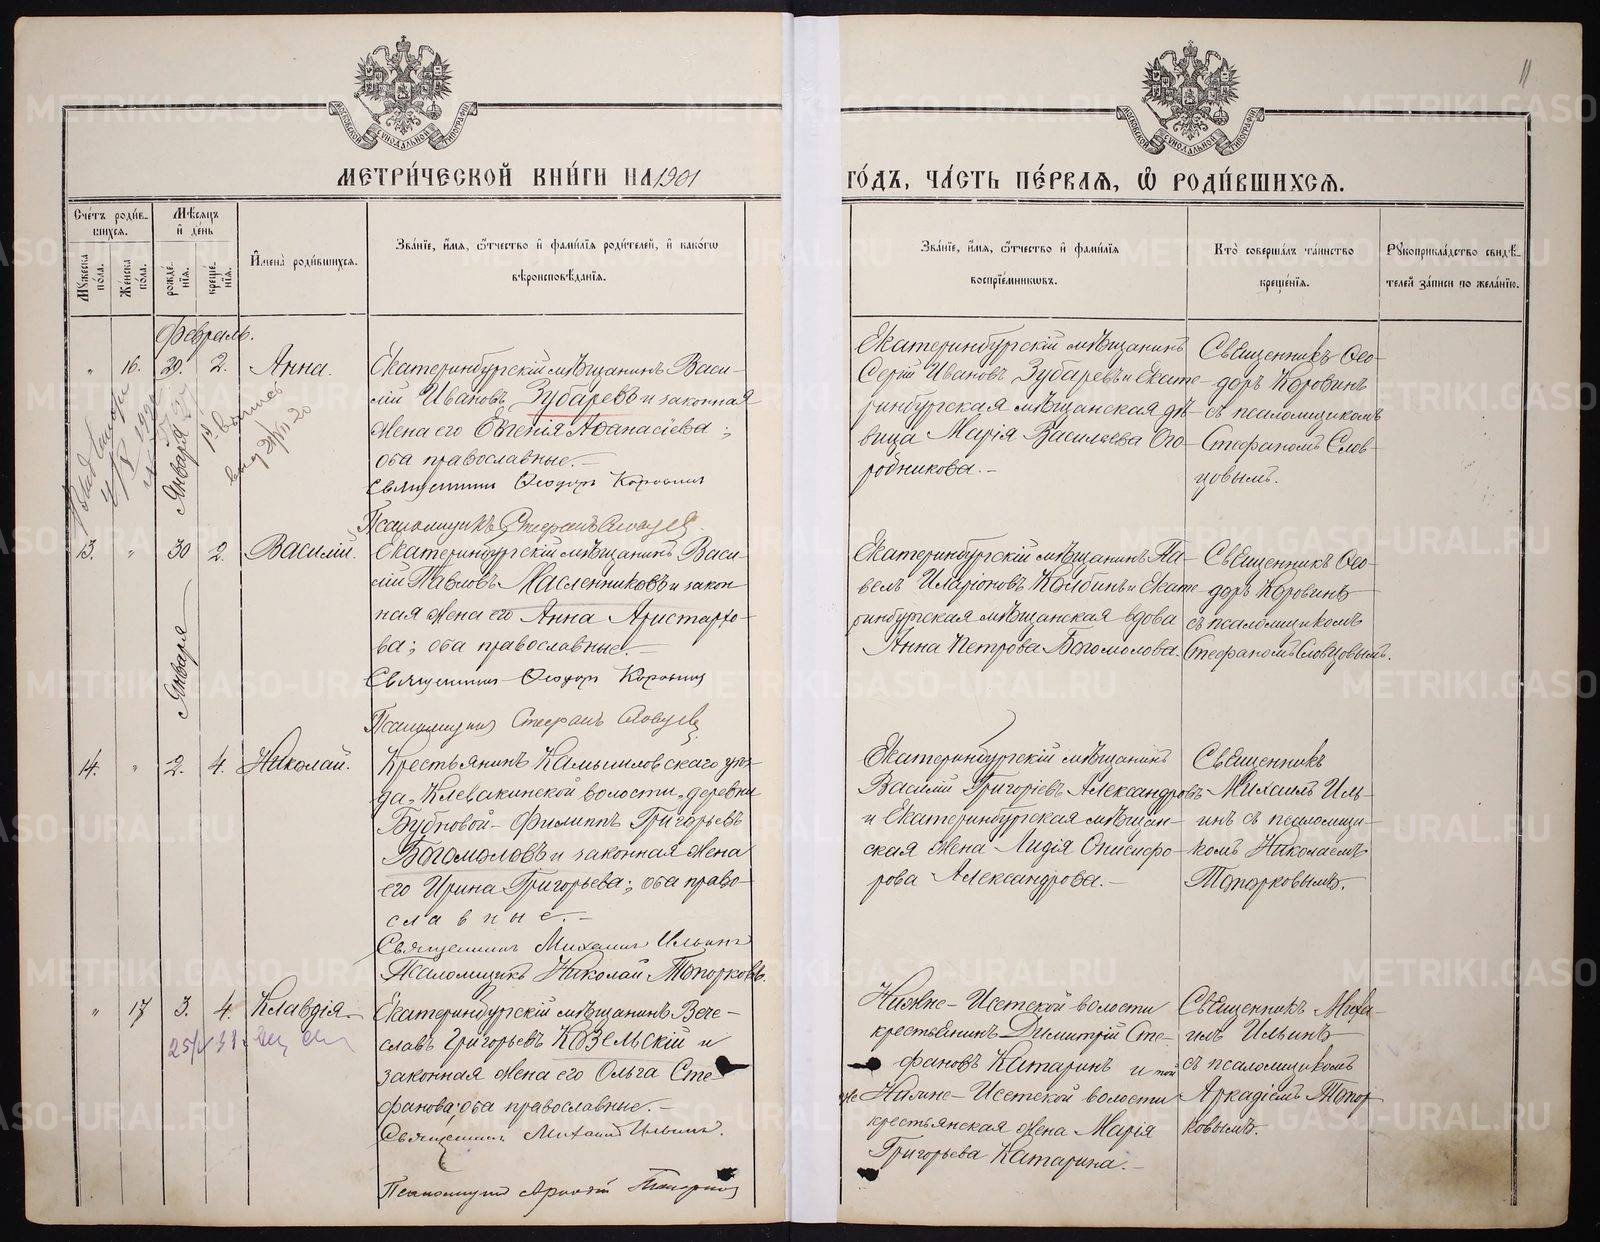 11
МОСКОВСКОЙ СѴНОДАЛЬНОЙ ТИПОГРАФІИ
МОСКОВСКОЙ СѴНОДАЛЬНОЙ ТИПОГРАФІИ
МЕТРИ́ЧЕСКОЙ КНИ́ГИ НА 1901 ГО́ДЪ, ЧА́СТЬ ПЕ́РВАЯ, Ѡ РОДИ́ВШИХСЯ.
Сче́тъ роди́в-
шихся.
Му́жеска по́ла.
Же́нска по́ла.
Мѣ́сяцъ
и де́нь
рожде́-
нія.
креще́-
нія.
Имена̀ роди́вшихся.
Зва́ніе, и́мя, о́тчество и фами́лія роди́телей, и како́гѡ
вѣроисповѣ́данія.
Зва́ніе, и́мя, о́тчество и фами́лія
воспріе́мникѡвъ.
Кто̀ соверша́лъ та́инство
креще́нія.
Рукоприкла́дство свидѣ́-
телей за́писи по жела́нію.
Февраль.
" 16. 29. 2. Анна.
Января
Екатеринбургскій мѣщанинъ Васи-
лій Ивановъ Зубаревъ и законная
жена его Евгенія Аѳанасіева;
оба православные.—
Священникъ Ѳеодоръ Коровинъ
Псаломщикъ Стефанъ Словцевъ.
Екатеринбургскій мѣщанинъ
Сергій Ивановъ Зубаревъ и Екате-
ринбургская мѣщанская дѣ-
вица Марія Васильева Ого-
родникова.—
Священникъ Ѳео-
доръ Коровинъ
съ псаломщикомъ
Стефаномъ Слов-
цовымъ.
13. " 30 2. Василій.
Января
Екатеринбургскій мѣщанинъ Васи-
лій Павловъ Масленниковъ и закон-
ная жена его Анна Аристархо-
ва; оба православные.—
Священникъ Ѳеодоръ Коровинъ
Псаломщикъ Стефанъ Словцевъ
Екатеринбургскій мѣщанинъ Па-
велъ Иларіоновъ Колбинъ и Екате-
ринбургская мѣщанская вдова
Анна Петрова Богомолова.
Священникъ Ѳео-
доръ Коровинъ
съ псаломщикомъ
Стефаномъ Словцовымъ.
14. " 2. 4. Николай.
Крестьянинъ Камышловскаго уѣз-
да, Клевакинской волости, деревни
Бубновой— Филиппъ Григорьевъ
Богомоловъ и законная жена
его Ирина Григорьева; оба право-
славные.—
Священникъ Михаилъ Ильинъ
Псаломщикъ Николай Топорковъ.
Екатеринбургскій мѣщанинъ
Василій Григоріевъ Александровъ
и Екатеринбургская мѣщан-
ская жена Лидія Онисифо-
рова Александрова.—
Священникъ
Михаилъ Иль-
инъ съ псаломщи-
комъ Николаемъ
Топорковымъ.
" 17 3. 4. Клавдія.
Екатеринбургскій мѣщанинъ Вече-
славъ Григорьевъ Козельскій и
законная жена его Ольга Сте-
фанова; оба православные.—
Священникъ Михаилъ Ильинъ.
Псаломщикъ Аркадій Топорковъ
Нижне-Исетской волости
крестьянинъ Димитрій Сте-
фановъ Катаринъ и той
же Нижне-Исетской волости
крестьянская жена Марія
Григорьева Катарина.—
Священникъ Миха-
илъ Ильинъ
съ псаломщикомъ
Аркадіемъ Топор-
ковымъ.
METRIKI.GASO-URAL.RU